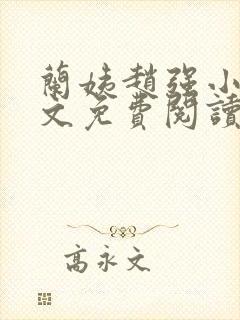 蘭姨趙强小
文免費閱讀
高永文